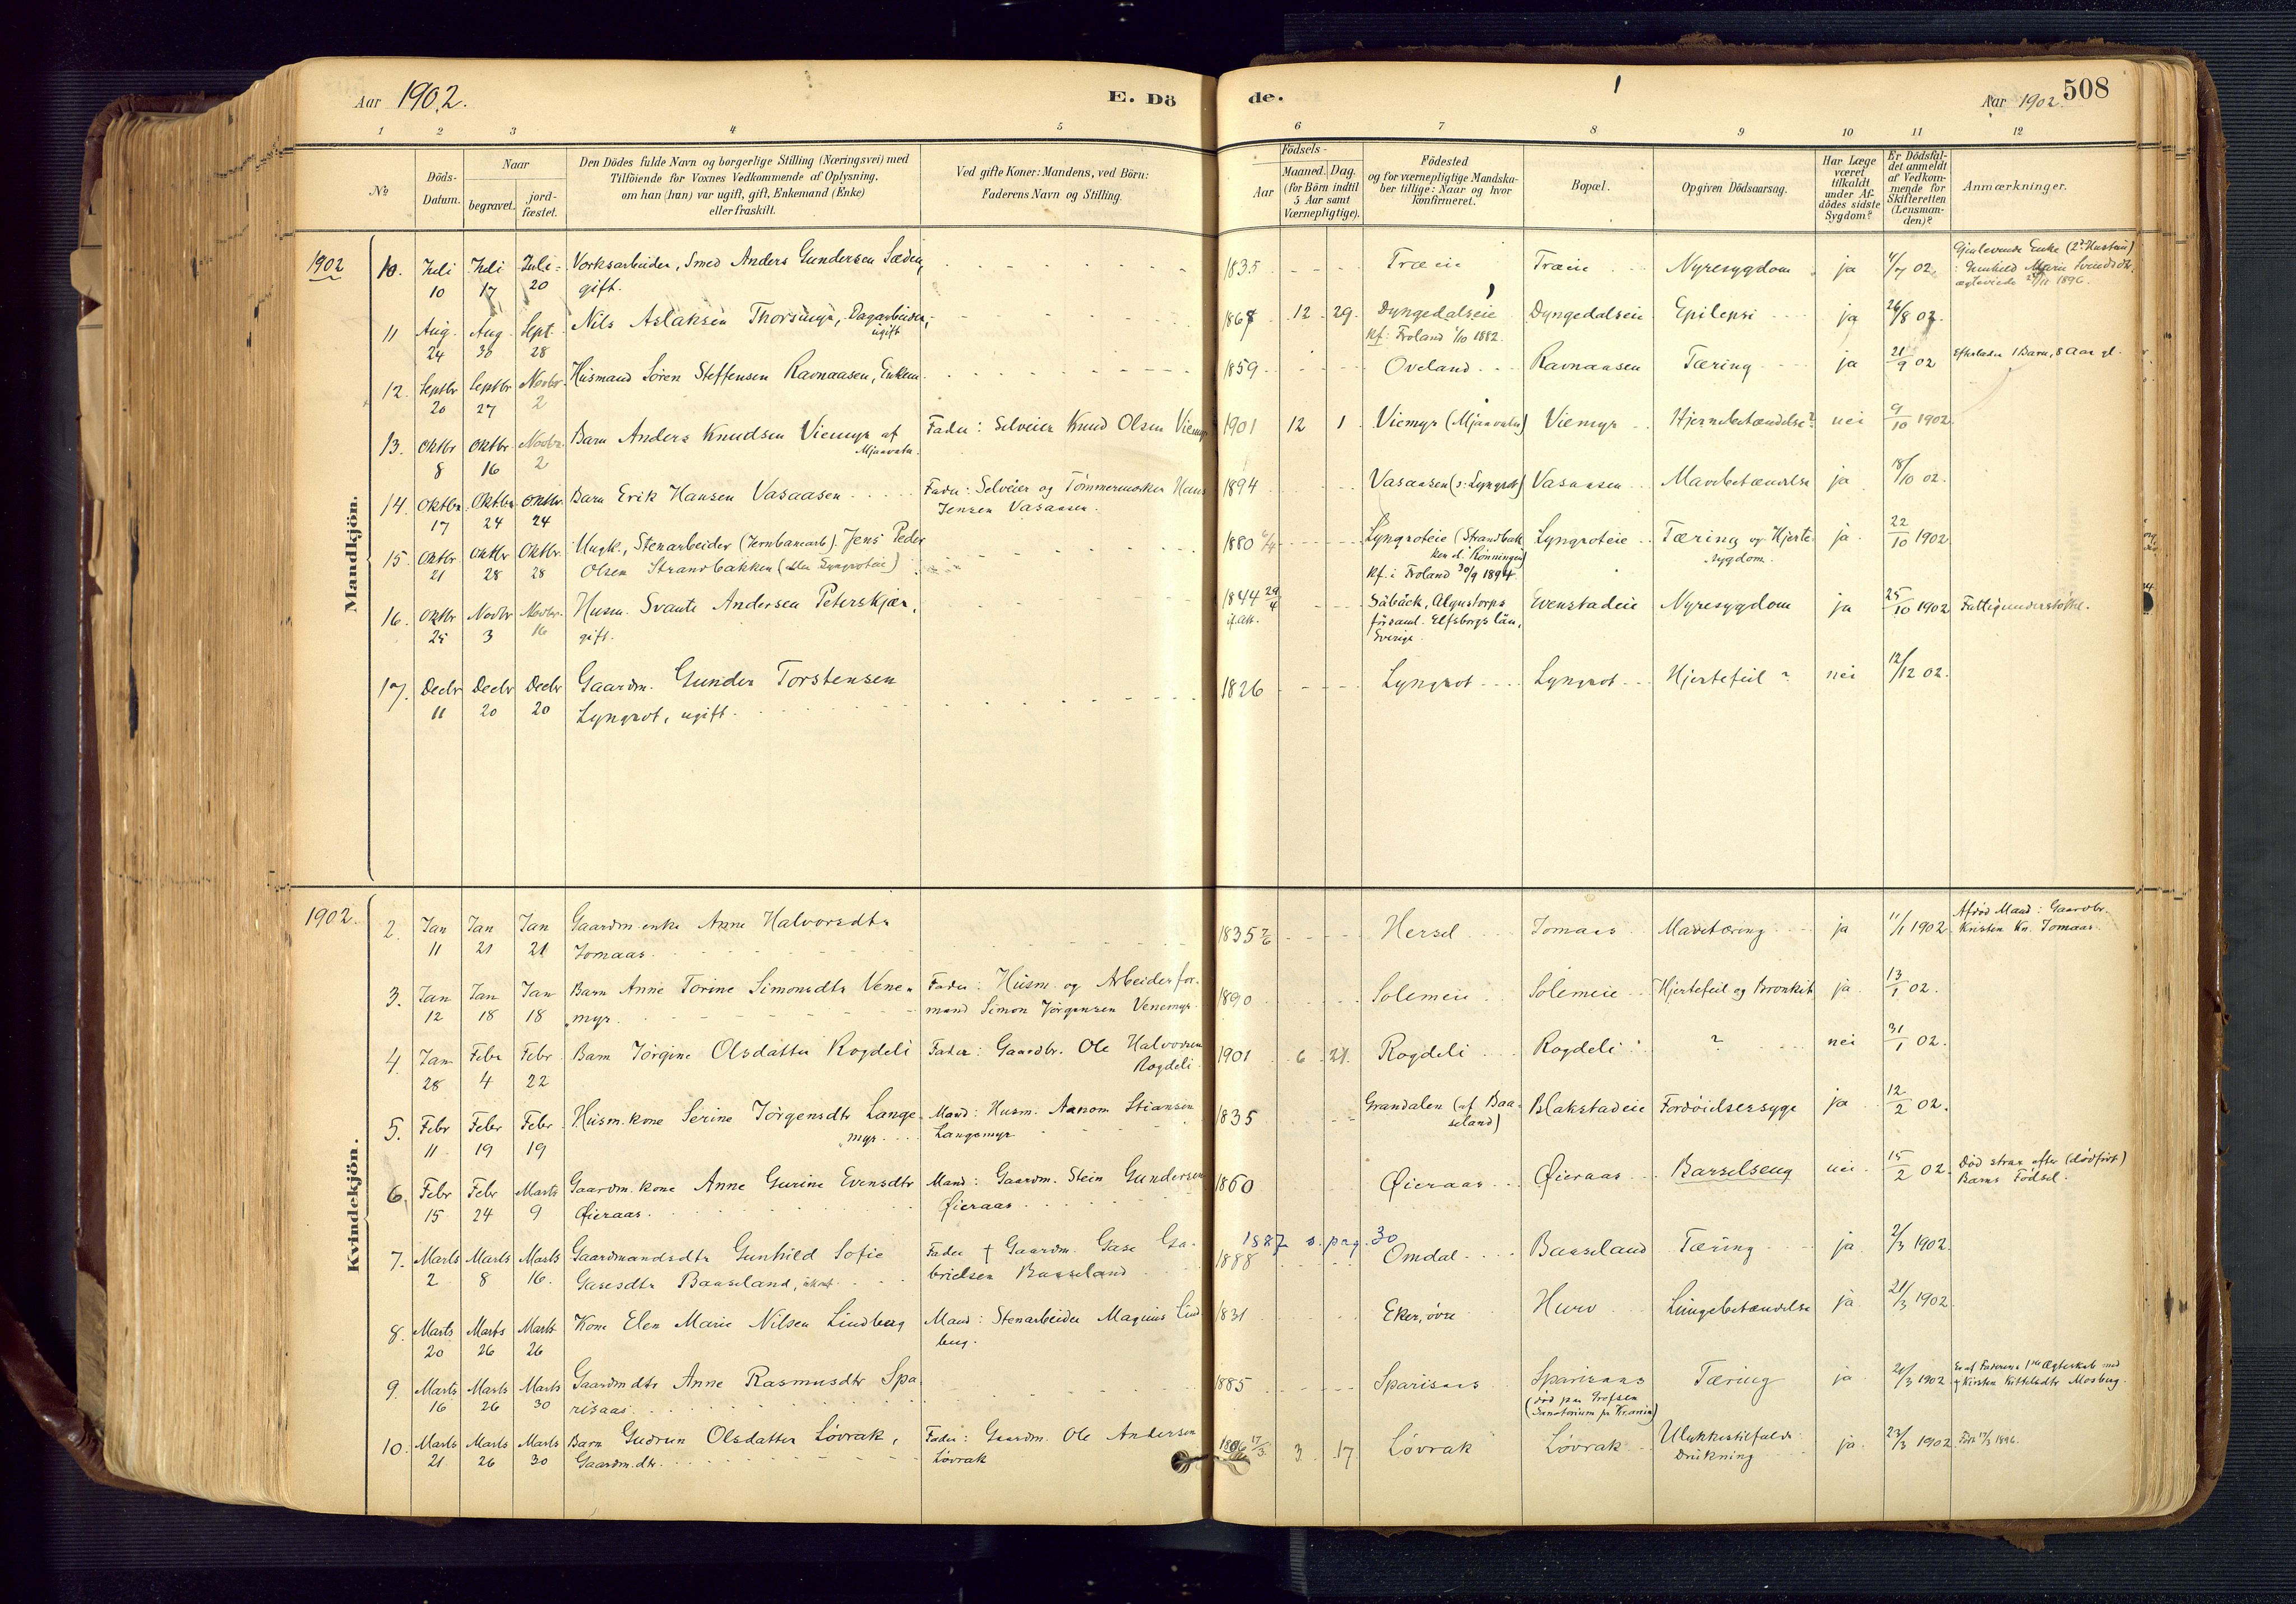 Aar 1902.
E. Dö
de.
Aar 1902.
508
1 2 3 4 5 6 7 8 9 10 11 12
№
Döds-
Datum.
Naar
begravet.
jord-
fæstet.
Den Dödes fulde Navn og borgerlige Stilling (Næringsvei) med
Tilföiende for Voxnes Vedkommende af Oplysning,
om han (hun) var ugift, gift, Enkemand (Enke)
eller fraskilt.
Ved gifte Koner: Mandens, ved Börn:
Faderens Navn og Stilling.
Födsels-
Aar
Maaned. Dag.
(for Börn indtil
5 Aar samt
Værnepligtige).
Födested
og for værnepligtige Mandska-
ber tillige: Naar og hvor
konfirmeret.
Bopæl.
Opgiven Dödsaarsag.
Har Læge
været
tilkaldt
under Af-
dödes sidste
Sygdom?
Er Dödsfal-
det anmeldt
af Vedkom-
mende for
Skifteretten
(Lensman-
den)?
Anmærkninger.
Mandkjön.
1902
10. Juli 10 Juli 17 Juli 20 Vorksarbeider, Smed Anders Gundersen
gift. 1835 Træeie Træeie Nyresygdom ja 11/7 02. Gjenlevende Enke (2. Hustru)
: Gunhild Marie
1896.
11 Aug. 24 Aug. 30 Sept. 28 Nils Aslaksen Thorsmyr, Dagarbeider,
ugift 1867 12 29 Dyngedalseie
kf. Froland 1/10 1882. Dyngedalseie Epilepsi ja 26/8 02.
12. Septbr 20 Septbr 27 Novbr. 2 Husmand Sören Steffensen Ravnaasen, Enkem. 1859 Oveland Ravnaasen Tæring ja 21/9 02 Efterlader 1 Barn, 8 Aar gl.
13. Oktbr 8 Oktbr 16 Novbr. 2 Barn Anders Knudsen Viemyr af
Mjaavatn. Fader: Selveier Knud Olsen Viemyr 1901 12 1 Viemyr (Mjaavatn) Viemyr Hjernebetændelse? nei 9/10 1902.
14. Oktbr. 17 Oktbr. 24 Oktbr. 24 Barn Erik Hansen Vasaasen Fader: Selveier og Tömmermærker Hans
Jensen Vasaasen. 1894 Vasaasen (s: Lyngrot) Vasaasen Mavebetændelse ja 18/10 02.
15. Oktbr. 21 Oktbr 28 Oktbr. 28 Ungk., Stenarbeider (Jernbanearb). Jens Peder
Olsen Strandbakken (eller Lyngroteie) 1880 Lyngroteie (Strandbak
ken el. Rønningen)
kf. i Froland 30/9 1894. Lyngroteie Tæring og Hjerte-
sygdom. ja 22/10 1902
16. Oktbr 25 Novbr 3 Novbr. 16 Husm. Svante Andersen Peterskjær,
gift. 1844 29/4
if. Att. Säbäck, Algustorps
församl. Elfsborgs län,
Sverige. Evenstadeie Nyresygdom ja 25/10 1902 Fattigunderstøttet.
17. Decbr 11 Decbr 20 Decbr 20 Gaardm. Gunder Torstensen
Lyngrot, ugift. 1826 Lyngrot Lyngrot Hjertefeil ? nei 12/12 02.
Kvindekjön.
1902.
2. Jan 11 Jan 21 Jan 21 Gaardm. enke Anne Halvorsdtr
Jomaas. 1835 7/6 Hersel Jomaas Mavetæring ja 11/1 1902 Afdöd Mand: Gaardbr.
Kristen Kn. Jomaas.
3. Jan 12 Jan 18 Jan 18 Barn Anne Torine Simonsdtr Vene-
myr. Fader: Husm. og Arbeiderfor-
mand Simon Jörgensen Venemyr 1890 Solemeie Solemeie Hjertefeil og Bronkit ja 13/1 02.
4. Jan 28 Febr 4 Febr. 22 Barn Jörgine Olsdatter Rogdeli Fader: Gaardbr. Ole Halvorsen
Rogdeli. 1901 6 21. Rogdeli Rogdeli ? nei 31/1 02.
5. Febr 11 Febr 19 Febr 19 Husm. kone Serine Jörgensdtr Lange-
myr. Mand: Husm. Aanon Stiansen
Langemyr 1835 Grandalen (af Baa-
seland) Blakstadeie Fordöielsessyge ja 12/2 02.
6. Febr 15 Febr 24 Marts 9 Gaardm. kone Anne Gurine Evensdtr
Øieraas. Mand: Gaardm. Stein Gundersen
Øieraas 1860 Øieraas Øieraas Barselseng nei 15/2 02. Död strax efter (dödfödt)
Barns Födsel.
7. Marts 2 Marts 8 Marts 16. Gaardmandsdtr Gunhild Sofie
Gasesdtr Baaseland, Fader † Gaardm. Gase Ga-
brielsen Baaseland 1887 s. pag. 30
1888 Omdal Baaseland Tæring ja 2/3 1902.
8. Marts 20 Marts 26 Marts 26 Kone Elen Marie Nilsen Lindberg Mand: Stenarbeider Magnus Lind
berg. 1831 Eker, övre Hurv Lungebetændelse ja 21/3 1902.
9. Marts 16 Marts 26 Marts 30 Gaardm dtr Anne Rasmusdtr Spa-
risaas 1885 Sparisaas Sparisaas
(död paa Grefsen
Sanatorium pr Kr.ania) Tæring ja 21/3 1902 Er af Faderens 1ste Ægteskab med
† Kirsten Kittelsdtr Mosberg.
10. Marts 21 Marts 26 Marts 30 Barn Gudrun Olsdatter Lövrak,
Gaardm.dtr. Fader: Gaardm. Ole Andersen
Lövrak 1896 17/3 3 17. Lövrak Lövrak Ulykkestilfælde
Drukning ja 22/3 1902 Född 17/3 1896.